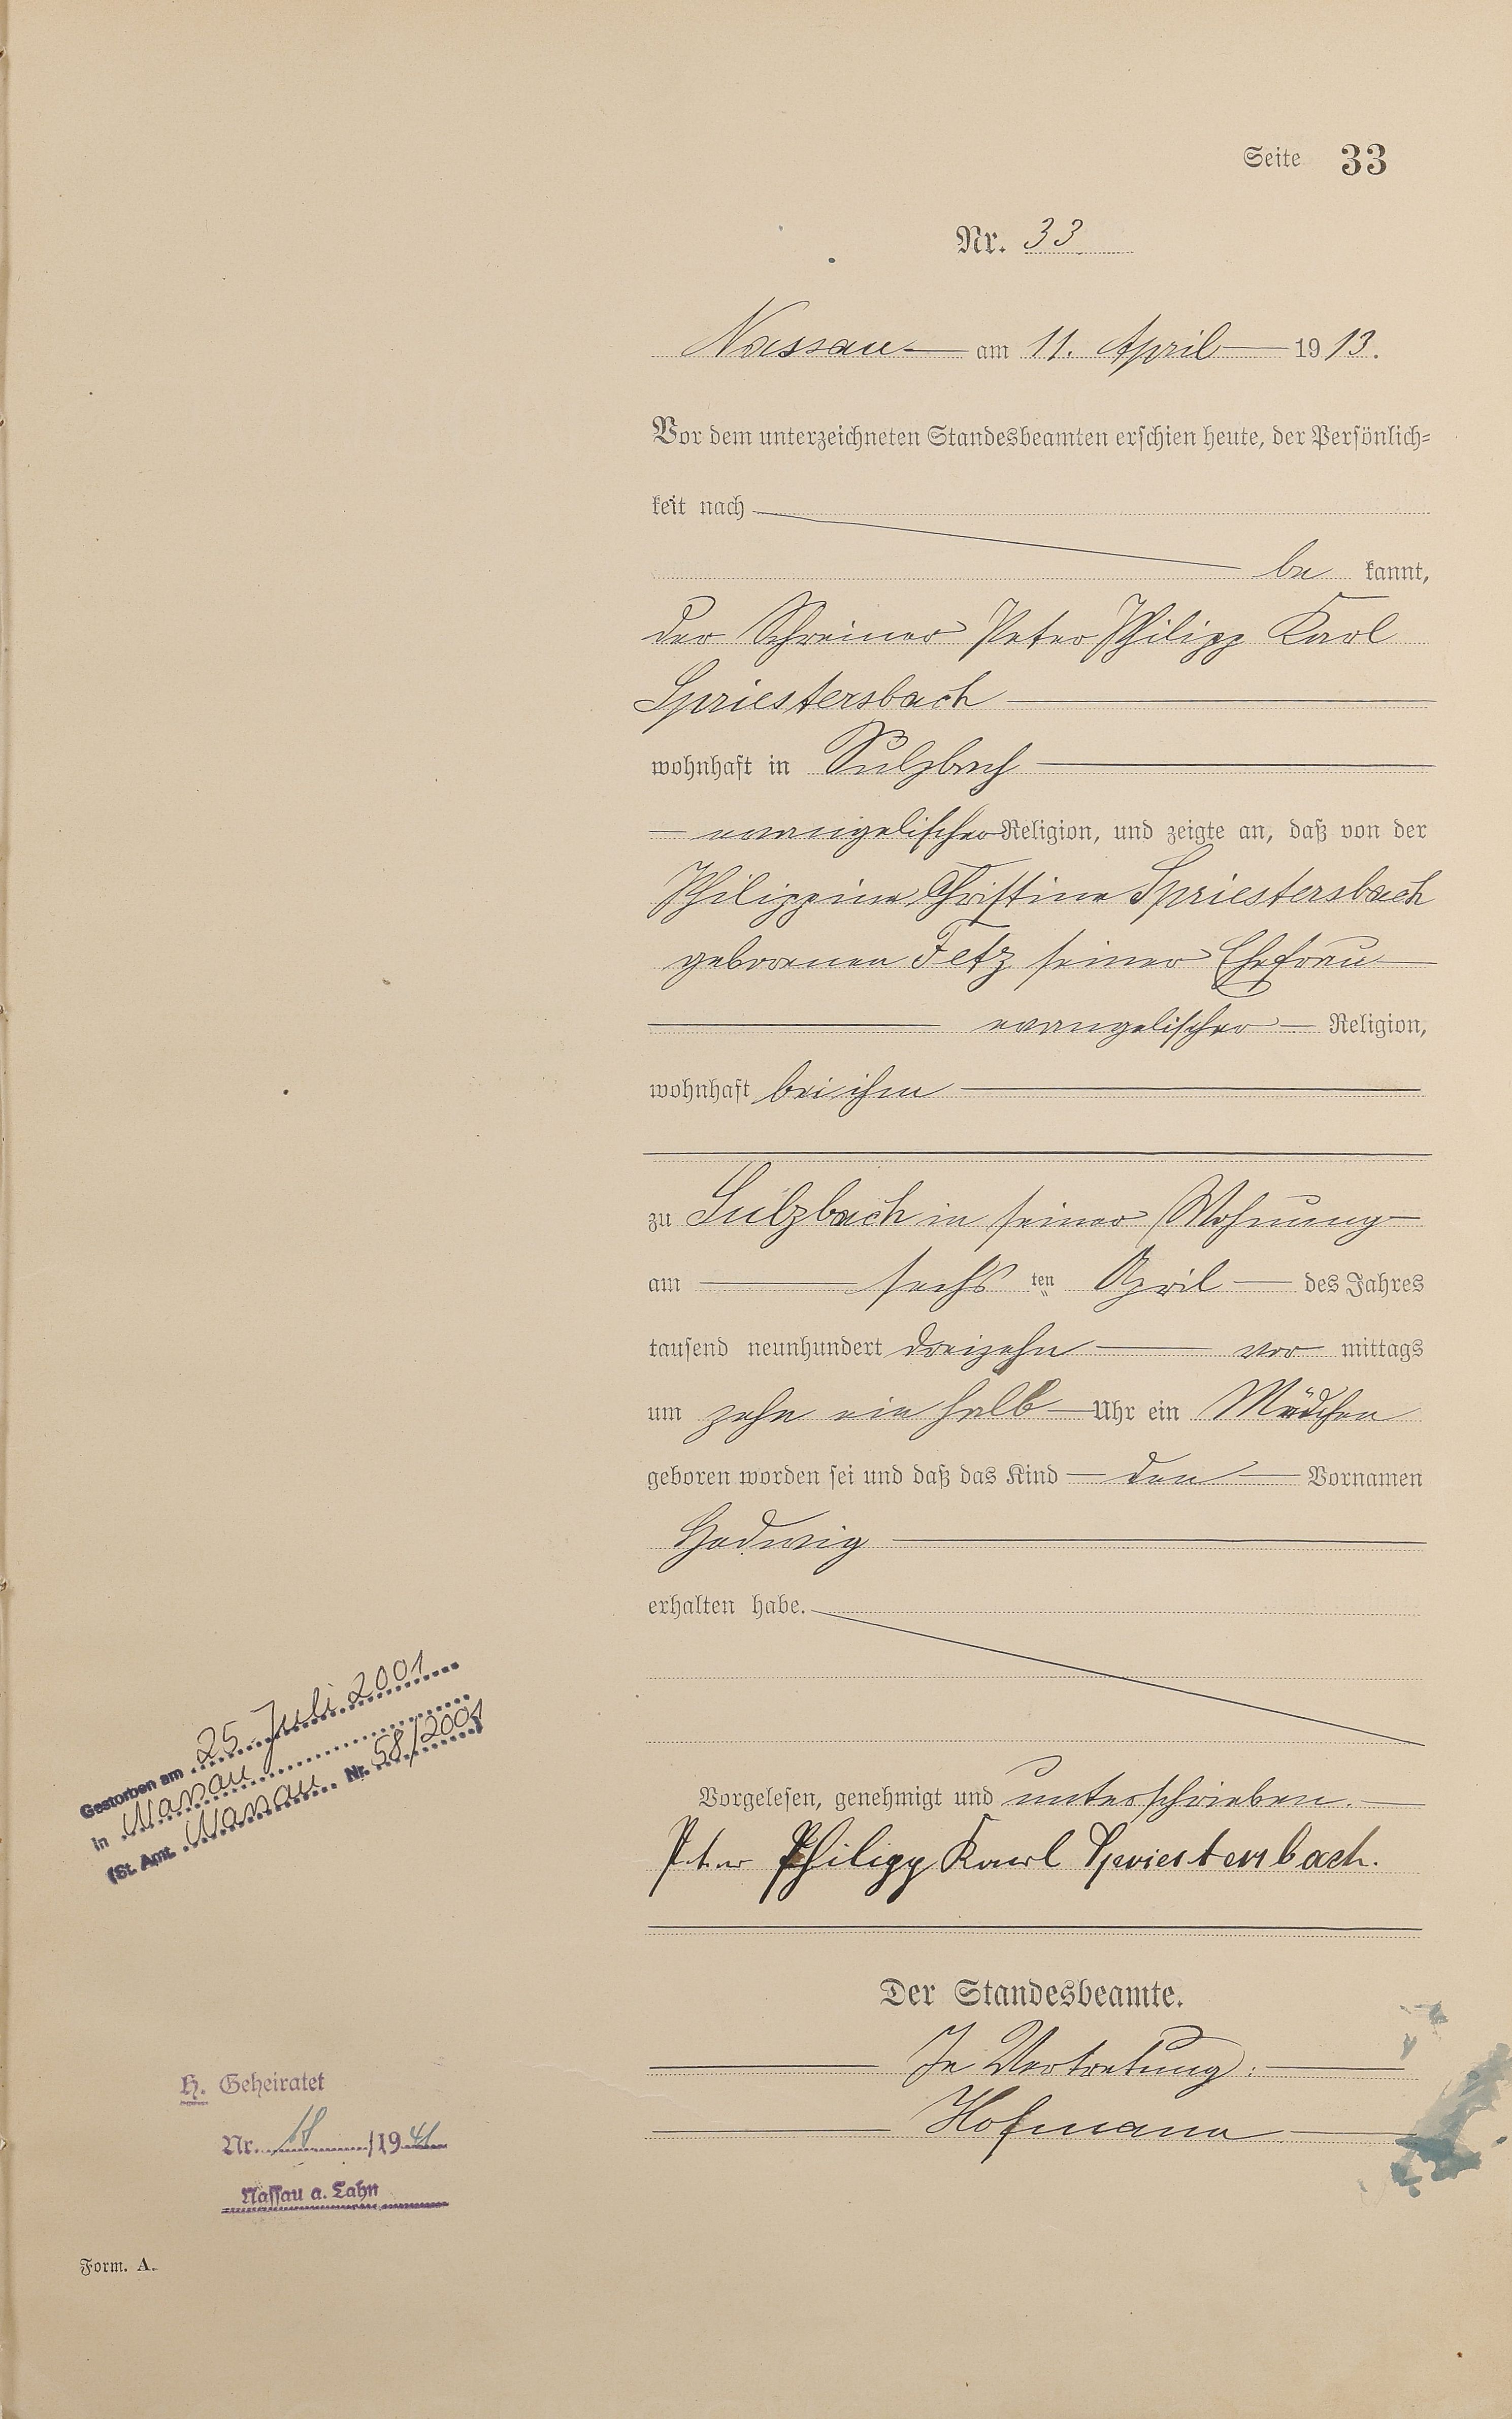 Seite 33
Nr. 33
Nassau am 11. April 1913.
Vor dem unterzeichneten Standesbeamten erschien heute, der Persönlich-
keit nach
be kannt,
der Schreiner Peter Philipp Karl
Spriestersbach
wohnhaft in Sulzbach
evangelischer Religion, und zeigte an, daß von der
Philippine Christine Spriestersbach
geborenen Fetz seiner Ehefrau
evangelischer Religion,
wohnhaft bei ihm
zu Sulzbach in seiner Wohnung
am sechs ten April des Jahres
tausend neunhundert dreizehn vor mittags
um zehn ein halb Uhr ein Mädchen
geboren worden sei und daß das Kind den Vornamen
Hedwig
erhalten habe.
Vorgelesen, genehmigt und unterschrieben.
Peter Philipp Karl Spriestersbach.
Der Standesbeamte.
In Vertretung:
Hofmann
Gestorben am 25. Juli 2001
in Nassau
(St. Amt. Nassau Nr. 58/2001)
H. Geheiratet
Nr. /1941
Nassau a. Lahn
Form. A.